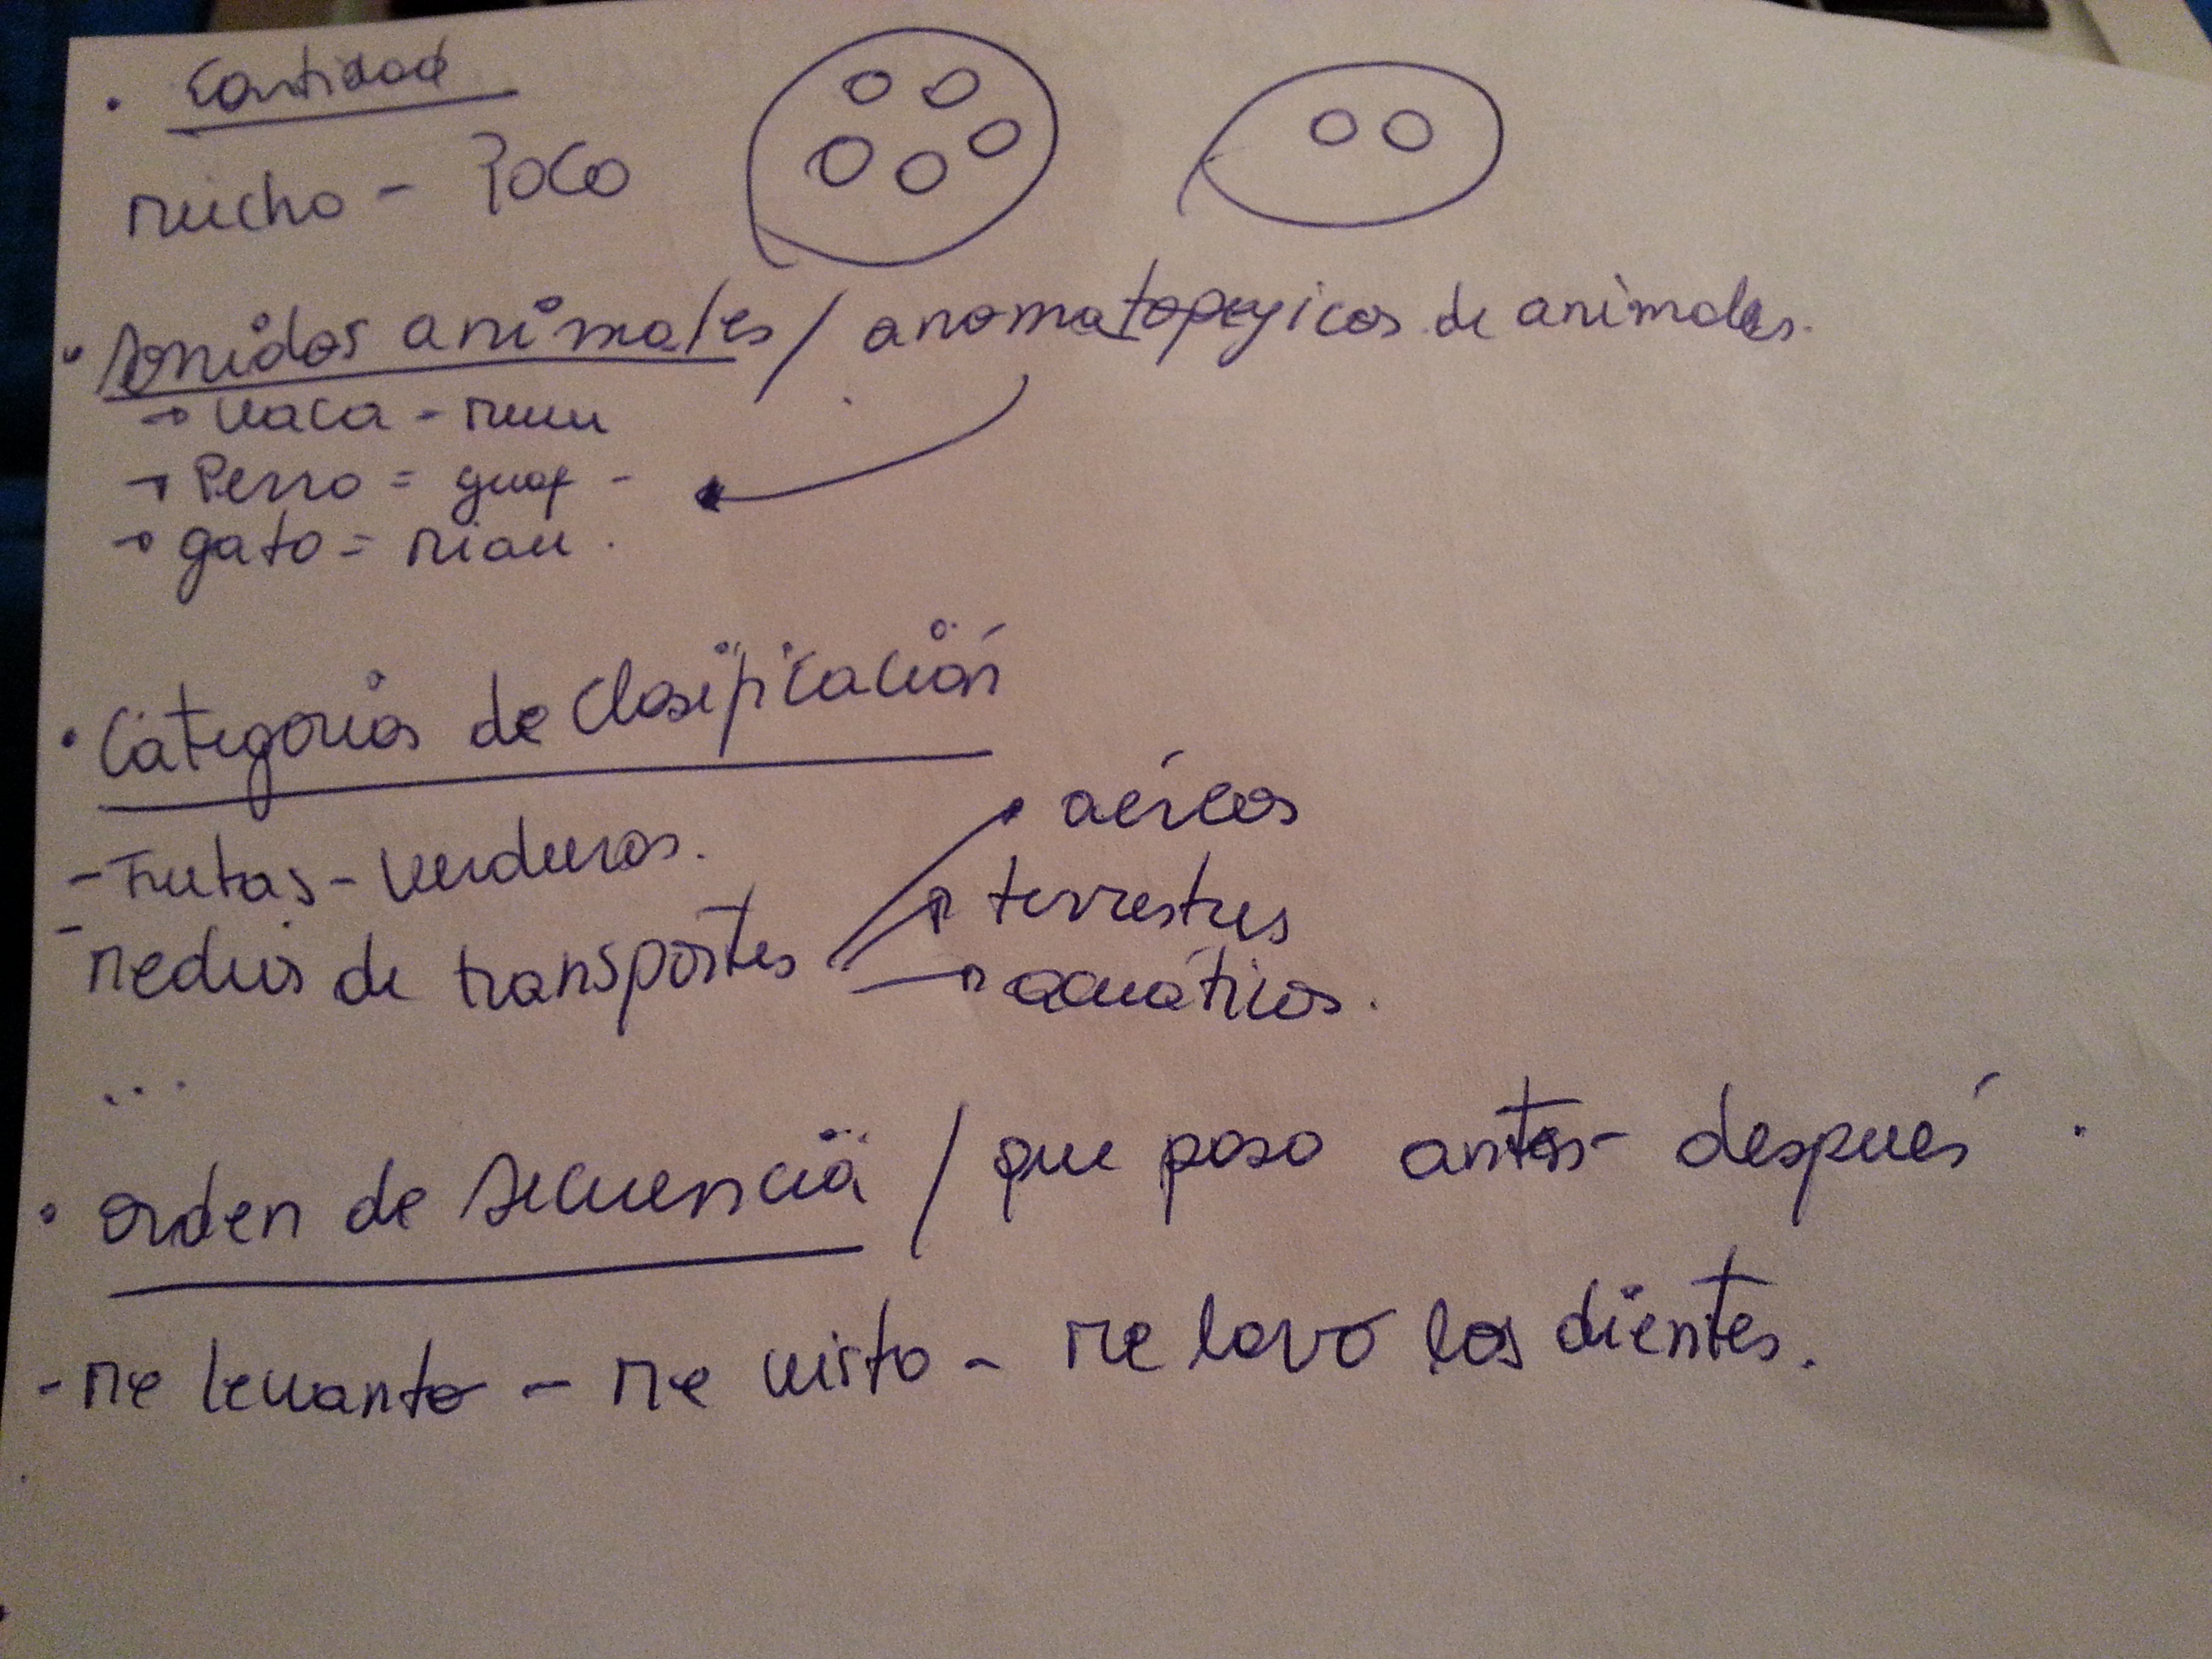 · Cantidad
mucho - Poco
· Sonidos animales / anomatopeyicos de animales.
→ vaca - muu
→ Perro = guaf -
→ gato = miau.
· Categorias de clasificación
- Frutas - verduras.
- medios de transportes → aéreos
→ terrestres
→ acuáticos.
...
· orden de secuencia / que paso antes - después.
- me levanto - me visto - me lavo los dientes.